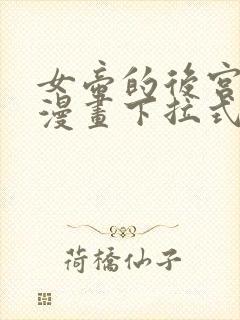 女帝的後宮
漫畫下拉式
荷橋仙子